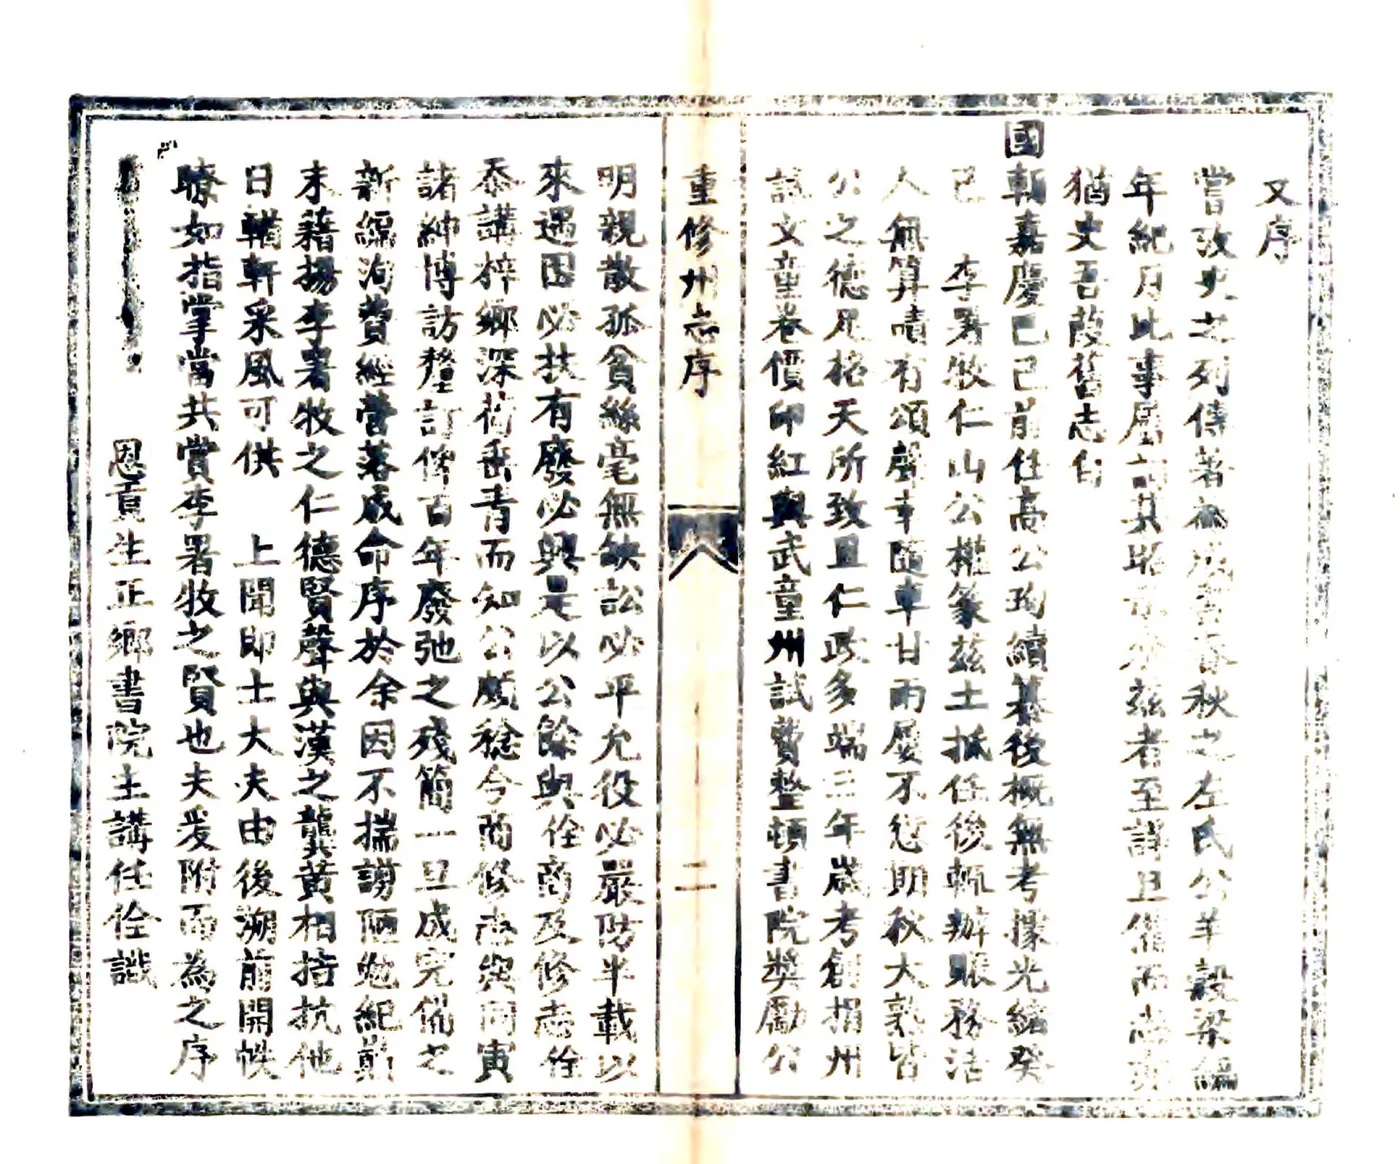 又序
嘗攷史之列傳著為成書春秋之左氏公羊穀梁編
年紀月比事屬詞其昭示來茲者至詳且備而志亦
猶史吾葭舊志自
國朝嘉慶己巳前任高公珣續纂後概無考據光緒癸
巳　李署牧仁山公權篆茲土抵任後輒辦賑務活
人無算嘖有頌聲幸隨車甘雨屢不愆期秋大熟皆
公之德足格天所致且仁政多端三年歲考創捐州
試文童卷價印紅與武童州試費整頓書院獎勵公
重修州志序
二
明親散孤貧絲毫無缺訟必平允役必嚴防半載以
來遇困必扶有廢必興是以公餘與佺商及修志佺
忝講梓鄉深荷垂青而知公願稔今商修志與同寅
諸紳博訪釐訂俾百年廢弛之殘簡一旦成完備之
新編洵費經營落成命序於余因不揣謭陋勉紀顛
末藉揚李署牧之仁德賢聲與漢之龔黃相拮抗他
日輶軒采風可供　上聞即士大夫由後溯前開帙
瞭如指掌當共賞李署牧之賢也夫爰附而為之序
恩貢生正鄉書院主講任佺識